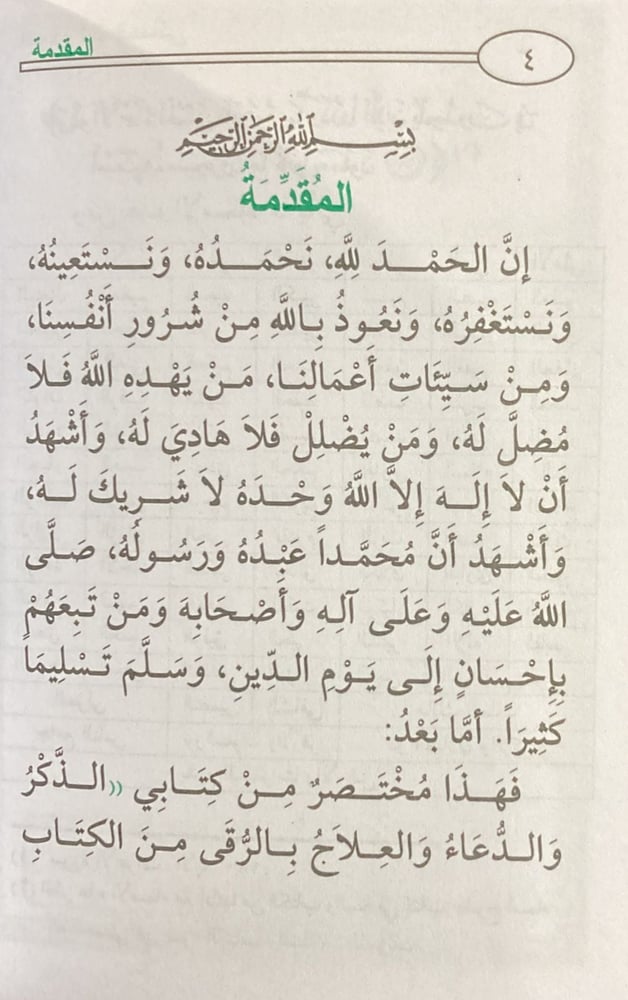 المقدمة
٤
بِسْمِ اللهِ الرَّحْمٰنِ الرَّحِيْمِ
المُقَدِّمَةُ
إِنَّ الحَمْدَ لِلَّهِ، نَحْمَدُهُ، وَنَسْتَعِينُهُ،
وَنَسْتَغْفِرُهُ، وَنَعُوذُ بِاللَّهِ مِنْ شُرُورِ أَنْفُسِنَا،
وَمِنْ سَيِّئَاتِ أَعْمَالِنَا، مَنْ يَهْدِهِ اللَّهُ فَلاَ
مُضِلَّ لَهُ، وَمَنْ يُضْلِلْ فَلاَ هَادِيَ لَهُ، وَأَشْهَدُ
أَنْ لاَ إِلَهَ إِلاَّ اللَّهُ وَحْدَهُ لاَ شَرِيكَ لَهُ،
وَأَشْهَدُ أَنَّ مُحَمَّداً عَبْدُهُ وَرَسُولُهُ، صَلَّى
اللَّهُ عَلَيْهِ وَعَلَى آلِهِ وَأَصْحَابِهِ وَمَنْ تَبِعَهُمْ
بِإِحْسَانٍ إِلَى يَوْمِ الدِّينِ، وَسَلَّمَ تَسْلِيمَاً
كَثِيرَاً. أمَّا بَعْدُ:
فَهَذَا مُخْتَصَرٌ مِنْ كِتَابِي ((الذِّكْرُ
وَالدُّعَاءُ وَالعِلاَجُ بِالرُّقَى مِنَ الكِتَابِ